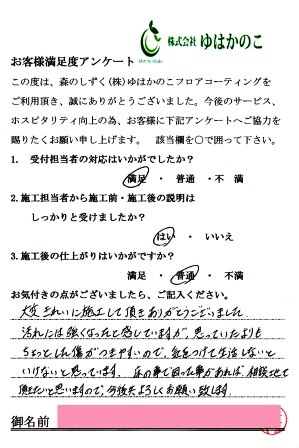 株式会社 ゆはかのこ
お客様満足度アンケート
この度は、森のしずく(株)ゆはかのこフロアコーティングを
ご利用頂き、誠にありがとうございました。今後のサービス、
ホスピタリティ向上の為、お客様に下記アンケートへご協力を
賜りたくお願い申し上げます。 該当欄を〇で囲って下さい。
1. 受付担当者の対応はいかがでしたか?
満足 ・ 普通 ・不 満
2.施工担当者から施工前・施工後の説明は
しっかりと受けましたか?
はい ・ いいえ
3.施工後の仕上がりはいかがですか?
満足 ・ 普通 ・不満
お気付きの点がございましたら、ご記入ください。
大変きれいに施工して頂きありがとうございました。
汚れには強くなったと感じていますが、思っていたよりも
ちょっとした傷がつきやすいので、気をつけて生活しないと
いけないと思っています。床の事で困った事があれば相談させて
頂きたいと思いますので、今後共よろしくお願い致します。
御名前